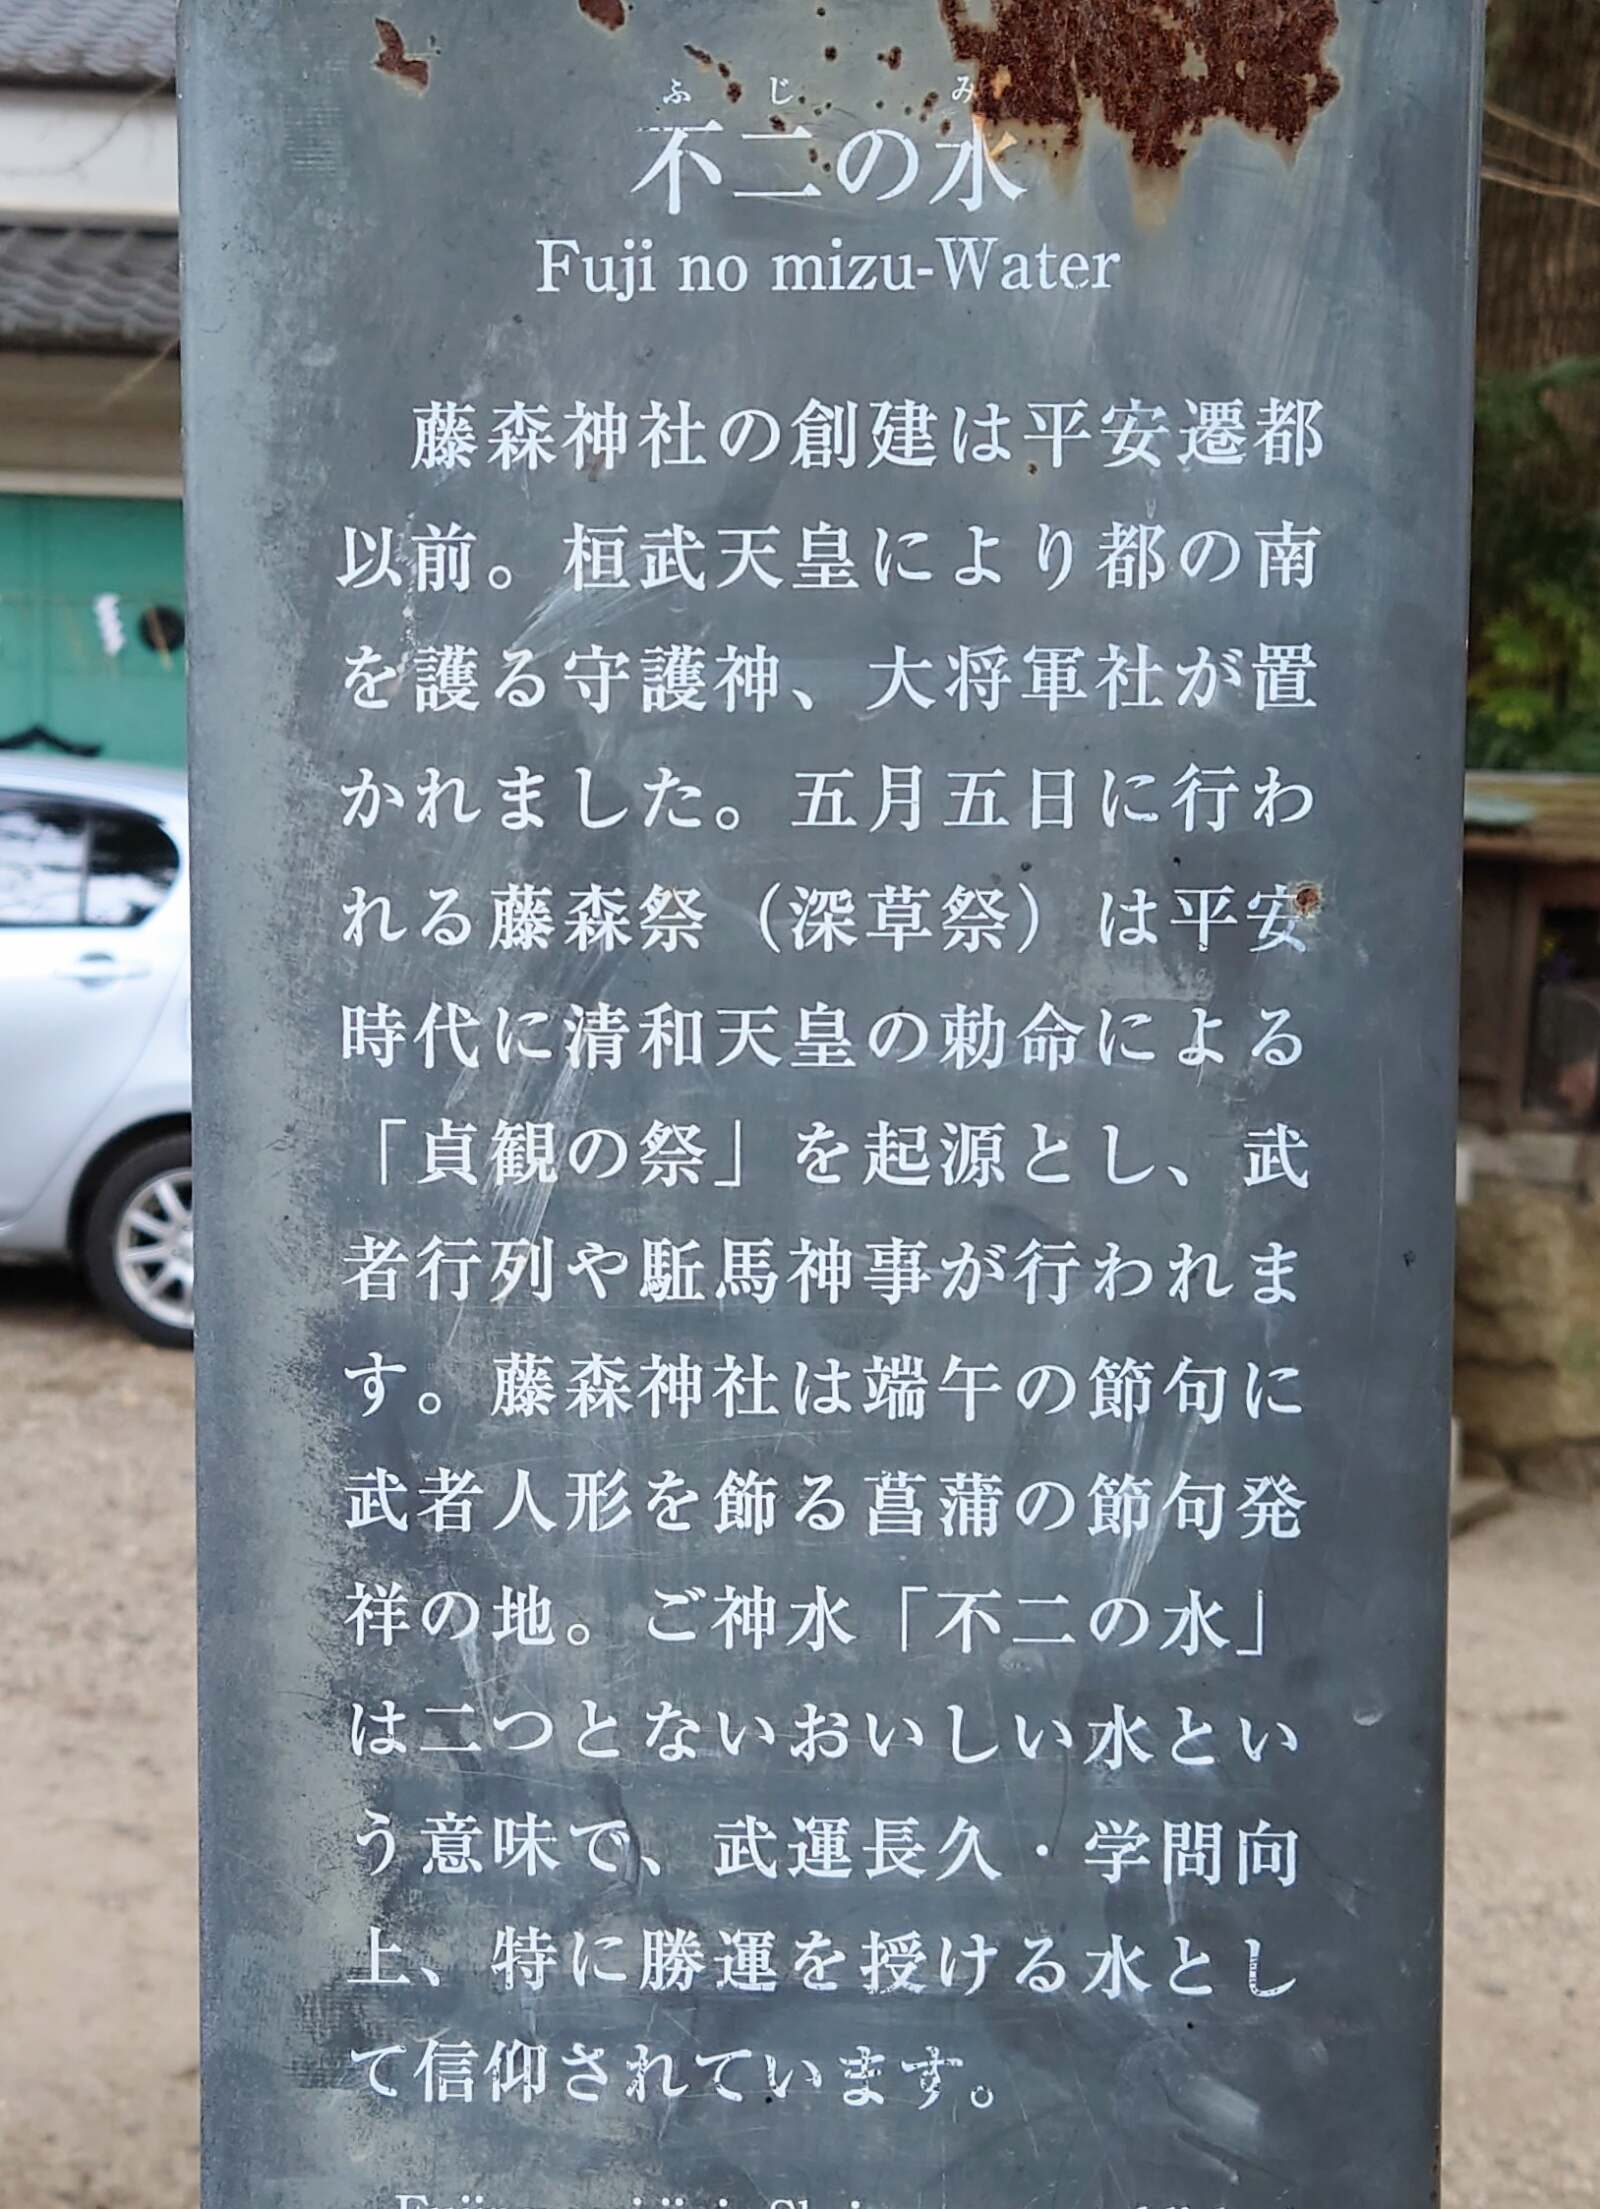 ふじ み
不二の水
Fuji no mizu-Water
藤森神社の創建は平安遷都
以前。桓武天皇により都の南
を護る守護神、大将軍社が置
かれました。五月五日に行わ
れる藤森祭（深草祭）は平安
時代に清和天皇の勅命による
「貞観の祭」を起源とし、武
者行列や駈馬神事が行われま
す。藤森神社は端午の節句に
武者人形を飾る菖蒲の節句発
祥の地。ご神水「不二の水」
は二つとないおいしい水とい
う意味で、武運長久・学問向
上、特に勝運を授ける水とし
て信仰されています。